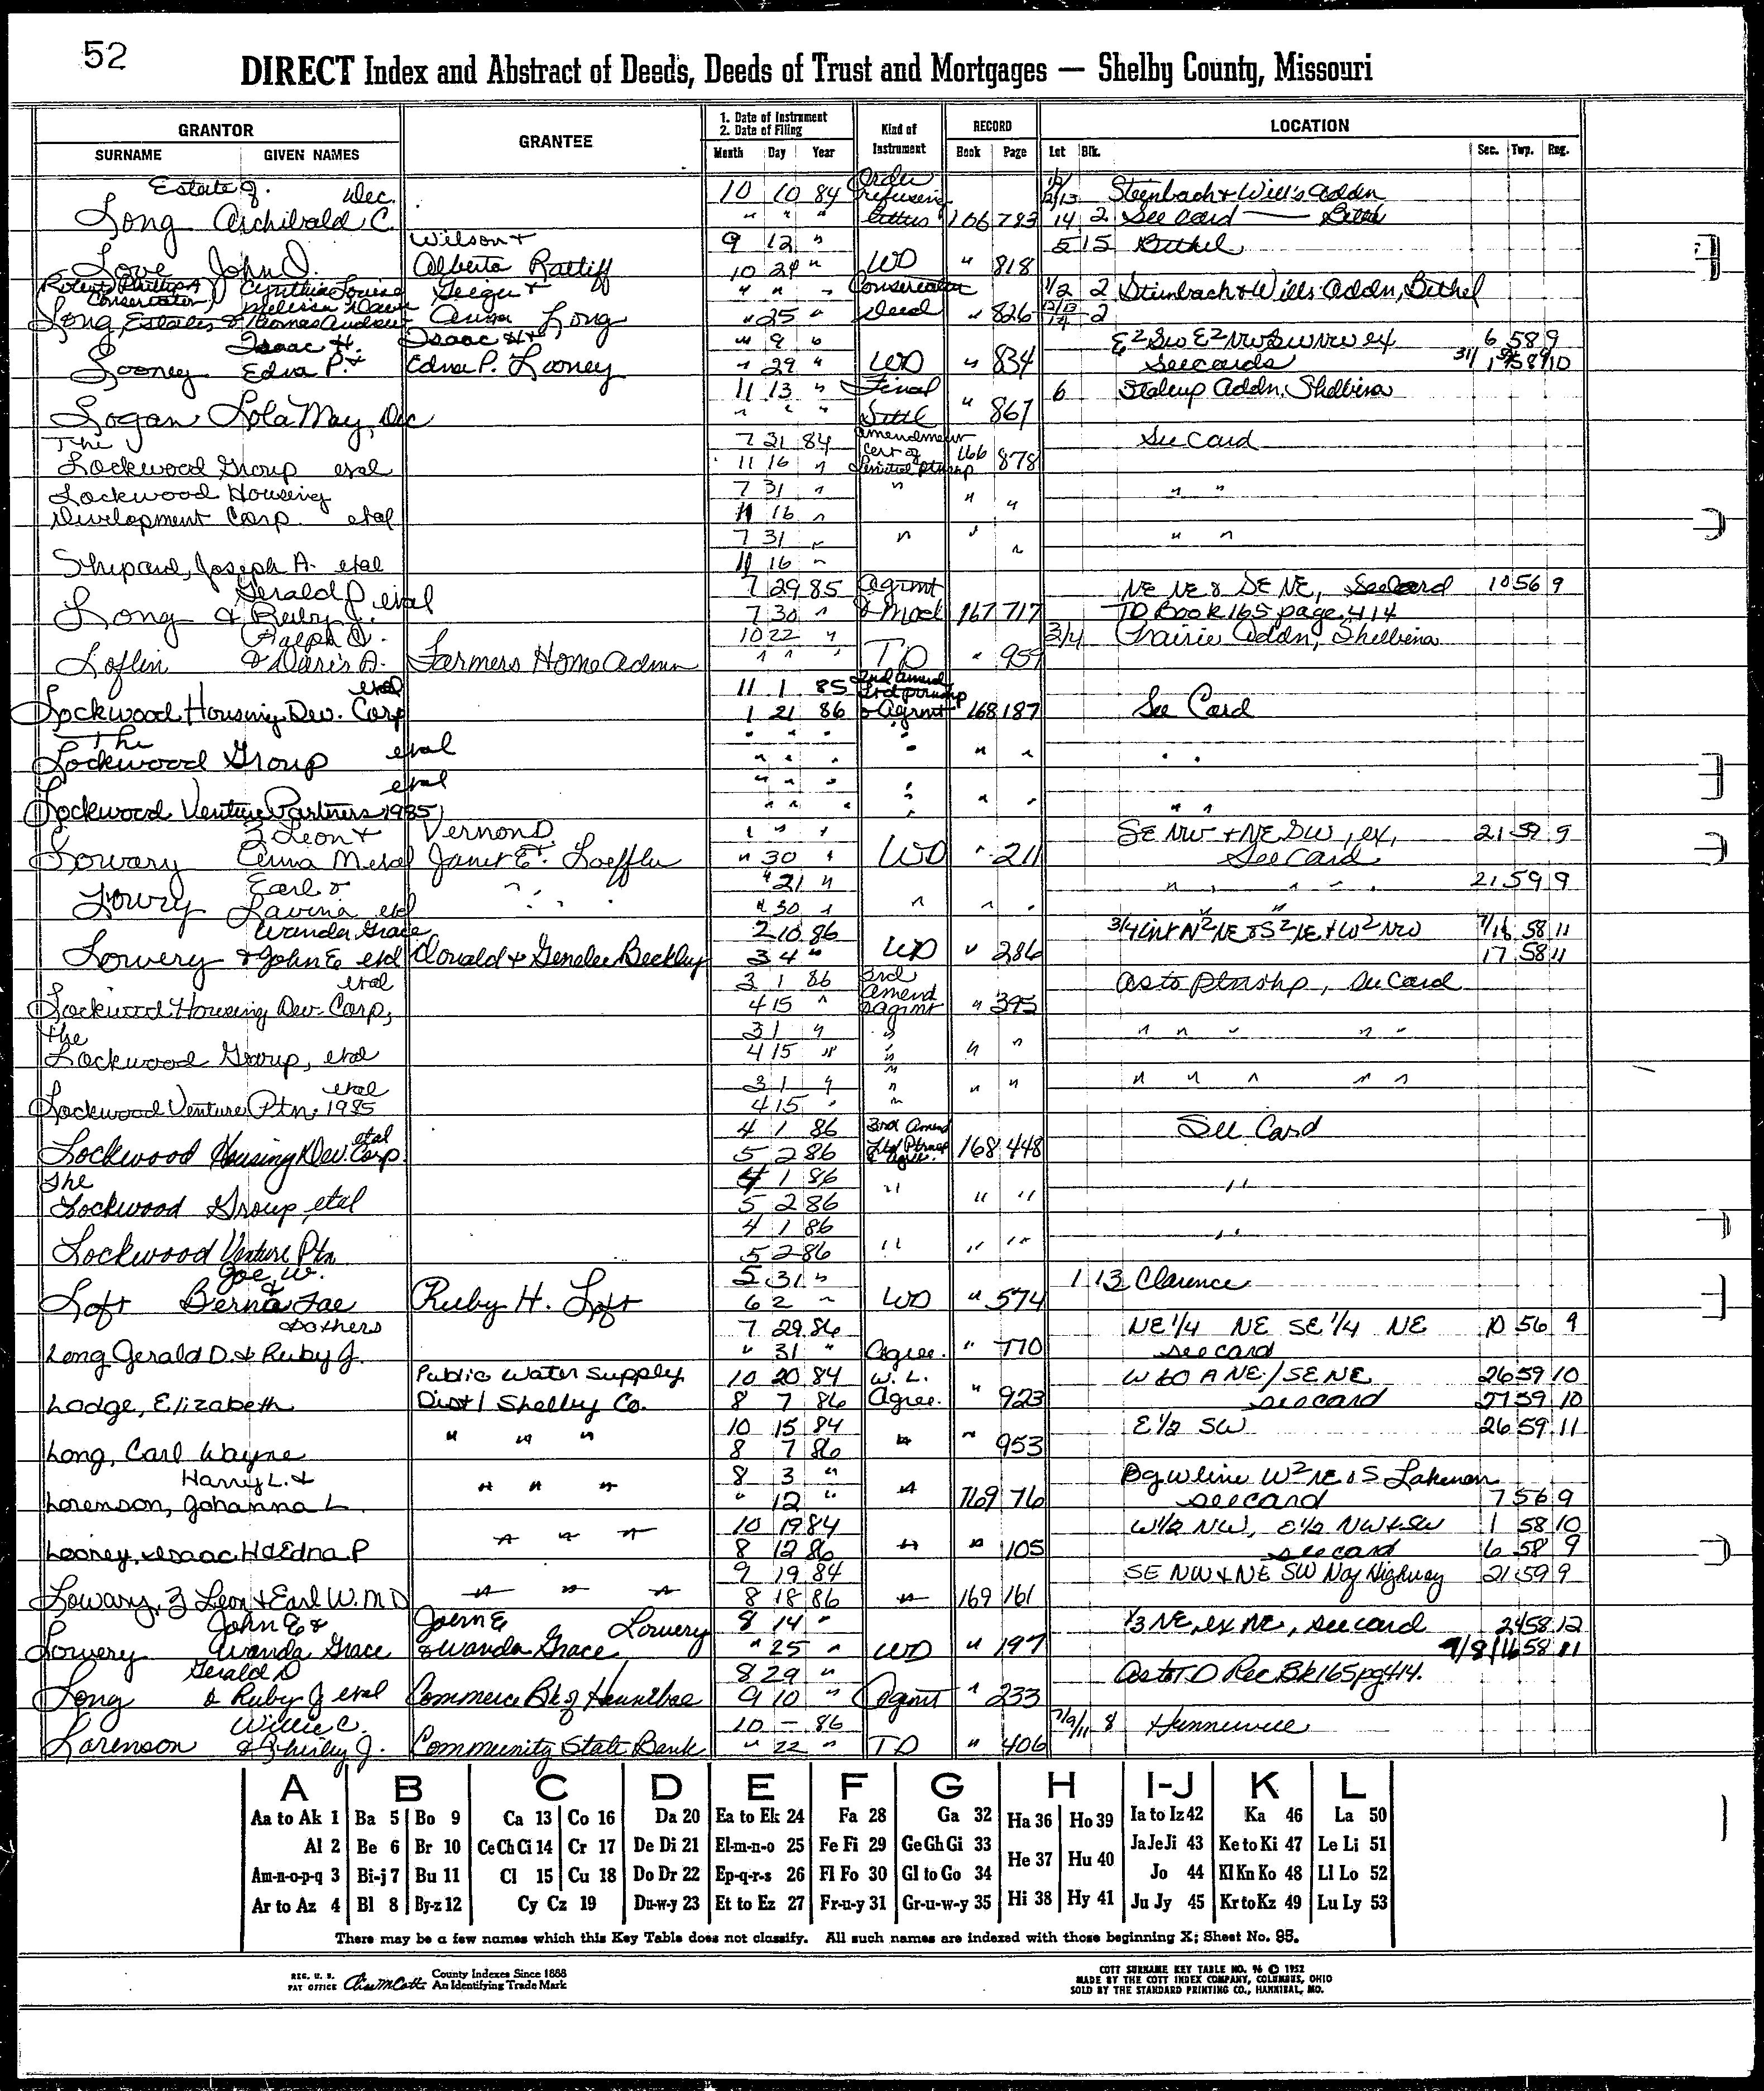 52
DIRECT Index and Abstract of Deeds, Deeds of Trust and Mortgages — Shelby County, Missouri
GRANTOR GRANTEE 1. Date of Instrument 2. Date of Filing Kind of Instrument RECORD LOCATION
SURNAME GIVEN NAMES Month Day Year Book Page Lot Blk. Sec. Twp. Rng.
Estate of Dec. 10 10 84 Order refusing Steinbach & Will's Addn
Long Archibald C. " " " letters 166 783 14 2 See Card — Bethel
Wilson & 9 12 " 5 15 Bethel
Love John O. Alberta Ratliff 10 24 " WD " 818
Conservator Cynthia Louise Geiger & " " " Conservator 1/2 2 Steinbach & Wills Addn, Bethel
Long, Estates of Thomas Andrew Anna Long " 25 " Deed " 826 14 2
Isaac H. Isaac H & " 9 " E2 SW E2 NW SW NW ex 6 58 9
Looney Edna P. & Edna P. Looney " 29 " WD " 834 see cards
11 13 " Final 6 Stalcup Addn. Shelbina
Logan Lola May, Dec " " " Settl " 867
The 7 31 84 Amendment See Card
Lockwood Group etal 11 16 " Cert of Limited Ptnrshp 166 878
Lockwood Housing 7 31 " " " "
Development Corp. etal 11 16 " " "
7 31 " " " " "
Shepard, Joseph A. etal 11 16 " "
Gerald D etal 7 29 85 Agrmt NE NE & SE NE, See Card 10 56 9
Long & Ruby J. 7 30 " & Mod 167 717 TD Book 165 page 414
Ralph O. 10 22 " 3/4 Prairie Addn, Shelbina
Loflin & Doris A. Farmers Home Admn " " " TD " 959
etal 11 1 85 2nd amend
Lockwood Housing Dev. Corp 1 21 86 & Agrmt 168 187 See Card
The " " " "
Lockwood Group etal " " " " " " "
etal " " " "
Lockwood Venture Partners 1985 " " " " " " "
Z Leon & Vernon D 1 " " SE NW & NE SW, ex, 21 59 9
Lowary Anna M etal Janet E. Loeffler " 30 " WD " 211 See Card
Earl & " " " 21 " " " " " 21 59 9
Lowry Lavina etal " 30 " " " "
Wanda Grace 2 10 86 3/4 int N2 NE & S2 NE & W2 NW 7/16 58 11
Lowery & John E etal Donald & Genelee Beckley 3 4 " WD " 286 17 58 11
etal 3 1 86 3rd Amend As to Ptnrshp, See Card
Lockwood Housing Dev. Corp, 4 15 " & agrmt " 395
The 3 1 " " " " " " "
Lockwood Group, etal 4 15 " " " "
etal 3 1 " " " " " " " " "
Lockwood Venture Ptn. 1985 4 15 " "
etal 4 1 86 3rd Amend See Card
Lockwood Housing Dev. Corp. 5 2 86 Ltd Ptnrsp & Agree. 168 448
The 4 1 86 " "
Lockwood Group, etal 5 2 86 " "
4 1 86 "
Lockwood Venture Ptn 5 2 86 " " "
Joe W. 5 31 " 1 13 Clarence
Loft & Berna Fae Ruby H. Loft 6 2 " WD " 574
& others 7 29 86 NE 1/4 NE SE 1/4 NE 10 56 9
Long Gerald D. & Ruby J. " 31 " Agree. " 770 see card
Public Water Supply 10 20 84 W. L. W 60 A NE/SE NE 26 59 10
Lodge, Elizabeth Dist 1 Shelby Co. 8 7 86 Agree. " 923 see card 27 59 10
" " " 10 15 84 E 1/2 SW 26 59 11
Long, Carl Wayne 8 7 86 " " 953
Harry L. & " " " 8 3 " Bg w line W2 NE & S Lakenan
Lorenson, Johanna L. " 12 " " 169 76 see card 7 56 9
" " " 10 19 84 W 1/2 NW, E 1/2 NW & SW 1 58 10
Looney, Isaac H & Edna P 8 12 86 " " 105 see card 6 58 9
9 19 84 SE NW & NE SW N of Highway 21 59 9
Lowary, Z Leon & Earl W. M D " " " 8 18 86 " 169 161
John E & John E Lowery 8 14 " 1/3 NE, ex NE, see card 24 58 12
Lowery Wanda Grace & Wanda Grace " 25 " WD " 197 9/8/16 58 11
Gerald D 8 29 " As to TD Rec Bk 165 pg 414.
Long & Ruby J etal Commerce Bk of Hannibal 9 10 " Agmt " 233
Willie C. 10 – 86 7/9/11 8 Hunnewell
Lorenson & Shirley J. Community State Bank " 22 " TD " 406
A B C D E F G H I-J K L
Aa to Ak 1 Ba 5 Bo 9 Ca 13 Co 16 Da 20 Ea to Ek 24 Fa 28 Ga 32 Ha 36 Ho 39 Ia to Iz 42 Ka 46 La 50
Al 2 Be 6 Br 10 Ce Ch Ci 14 Cr 17 De Di 21 El-m-n-o 25 Fe Fi 29 Ge Gh Gi 33 He 37 Hu 40 Ja Je Ji 43 Ke to Ki 47 Le Li 51
Am-n-o-p-q 3 Bi-j 7 Bu 11 Cl 15 Cu 18 Do Dr 22 Ep-q-r-s 26 Fl Fo 30 Gl to Go 34 Jo 44 Kl Kn Ko 48 Ll Lo 52
Ar to Az 4 Bl 8 By-z 12 Cy Cz 19 Du-w-y 23 Et to Ez 27 Fr-u-y 31 Gr-u-w-y 35 Hi 38 Hy 41 Ju Jy 45 Kr to Kz 49 Lu Ly 53
There may be a few names which this Key Table does not classify. All such names are indexed with those beginning X; Sheet No. 95.
REG. U. S. PAT OFFICE County Indexes Since 1888 An Identifying Trade Mark
COTT SURNAME KEY TABLE NO. 96 © 1952
MADE BY THE COTT INDEX COMPANY, COLUMBUS, OHIO
SOLD BY THE STANDARD PRINTING CO., HANNIBAL, MO.